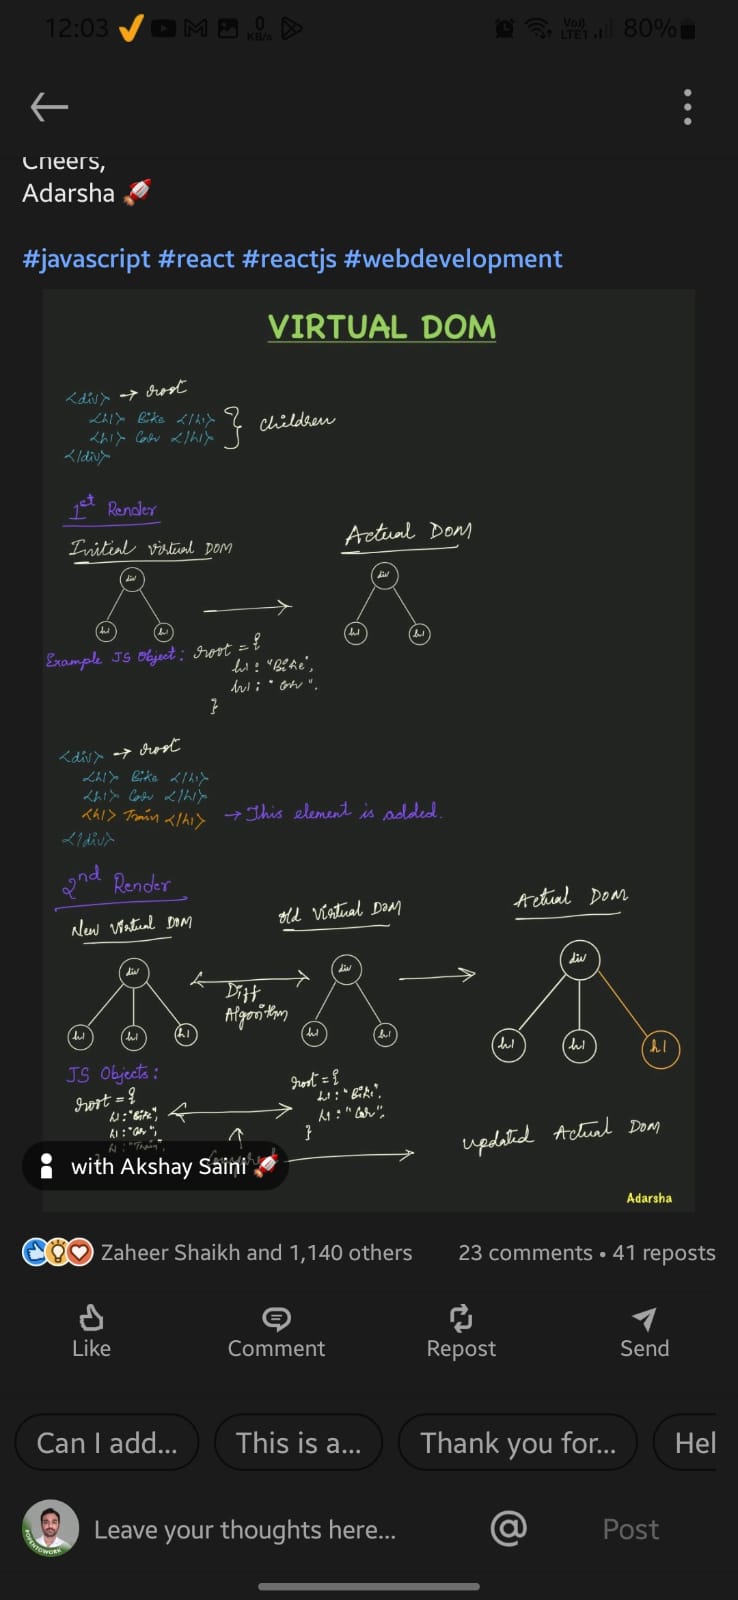 12:03
0
KB/s
Vo))
LTE1
80%
Cheers,
Adarsha
#javascript #react #reactjs #webdevelopment
VIRTUAL DOM
<div> → root
<h1> Bike </h1>
<h1> Car </h1>
} children
</div>
1st Render
Initial virtual DOM
Actual DOM
div
div
h1
h1
h1
h1
Example JS Object: root = {
h1 : "Bike",
h1 : "Car".
}
<div> → root
<h1> Bike </h1>
<h1> Car </h1>
<h1> Train </h1> → This element is added.
</div>
2nd Render
New Virtual DOM
Old Virtual DOM
Actual DOM
div
div
div
Diff
Algorithm
h1
h1
h1
h1
h1
h1
h1
h1
JS Objects:
root = {
h1 : "Bike",
h1 : "Car",
h1 : "Train",
root = {
h1 : "Bike",
h1 : "Car",
}
updated Actual DOM
with Akshay Saini
Adarsha
Zaheer Shaikh and 1,140 others
23 comments • 41 reposts
Like
Comment
Repost
Send
Can I add...
This is a...
Thank you for...
Hel
#OPENTOWORK
Leave your thoughts here...
@
Post